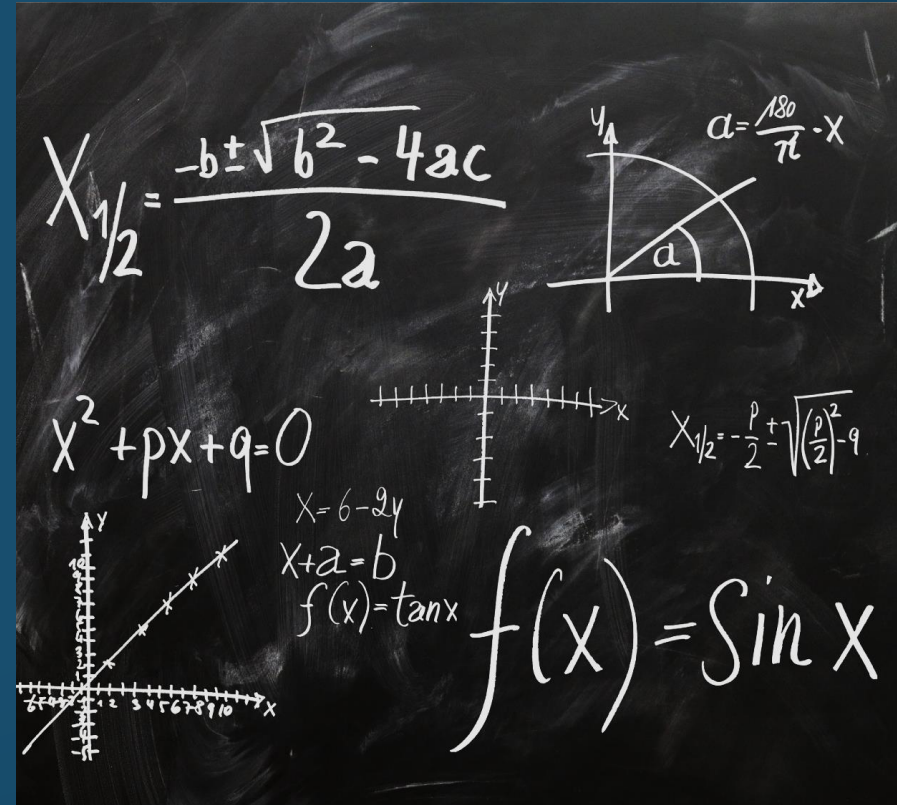 X₁/₂ = (-b ± √(b² - 4ac)) / 2a
y
a = 180/π · x
a
x
y
x
x² + px + q = 0
X₁/₂ = -p/2 ± √((p/2)² - q)
x = 6 - 2y
x + a = b
f(x) = tan x
f(x) = Sin x
y
1 2 3 4 5 6 7 8 9 10 x